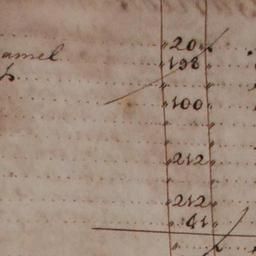 20
amel 198
100
212
212
41